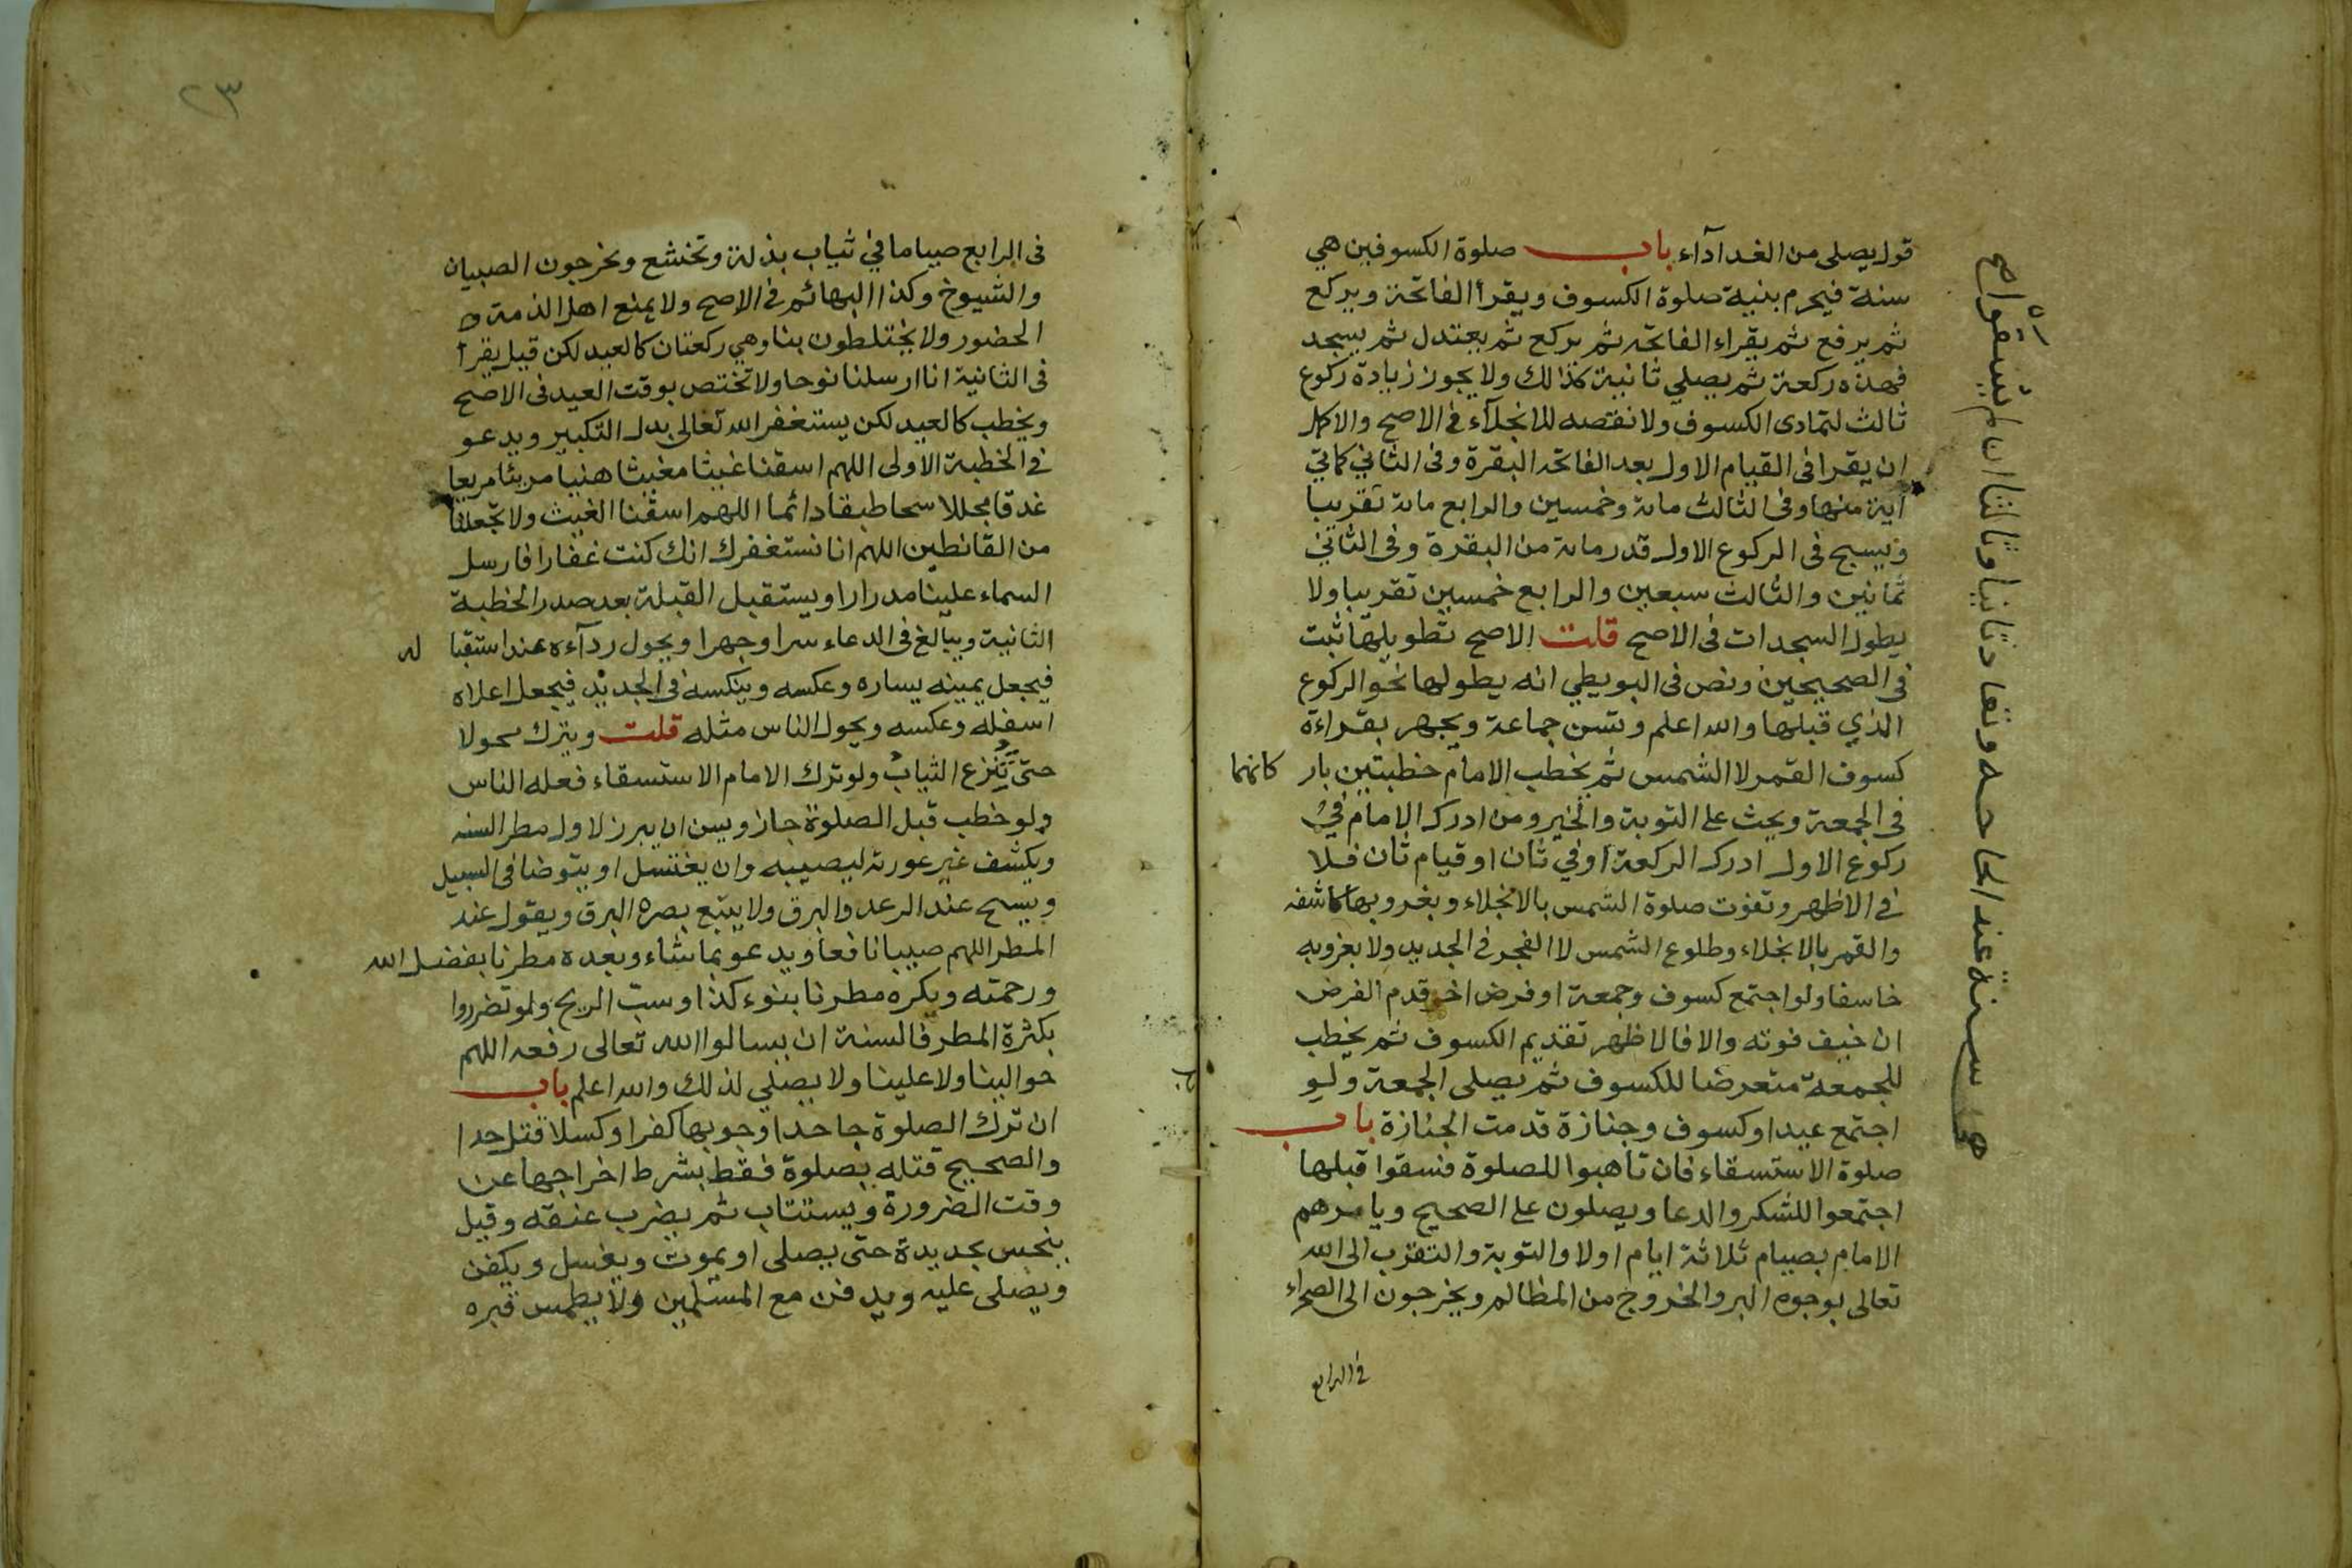 قول يصلى من الغد ادآء باب صلوة الكسوفين هي
سنة فيحرم بنية صلوة الكسوف ويقرأ الفاتحة ويركع
ثم يرفع ثم يقراء الفاتحه ثم يركع ثم يعتدل ثم يسجد
فهذه ركعة ثم يصلي ثانية كذالك ولا يجوز زيادة ركوع
ثالث لتمادى الكسوف ولا نقصه للانجلآء في الاصح والاكمل
ان يقرا فى القيام الاول بعد الفاتحه البقرة وفى الثاني كمائتي
آية منها وفى الثالث مائة وخمسين والرابع مائة تقريبا
ويسبح فى الركوع الاول قدر مائة من البقرة وفى الثاني
ثمانين والثالث سبعين والرابع خمسين تقريبا ولا
يطول السجدات فى الاصح قلت الاصح تطويلها ثبت
فى الصحيحين ونص فى البويطي انه يطولها نحو الركوع
الذي قبلها والله اعلم وتسن جماعة ويجهر بقراءة
كسوف القمر لا الشمس ثم يخطب الامام خطبتين بار كانهما
فى الجمعة ويحث على التوبة والخير ومن ادرك الامام في
ركوع الاول ادرك الركعة او في ثان او قيام ثان فلا
في الاظهر وتفوت صلوة الشمس بالانجلاء وبغروبها كاشفه
والقمر بالانجلاء وطلوع الشمس لا الفجر في الجديد ولا بغروبه
خاسفا ولو اجتمع كسوف وجمعة او فرض اخر قدم الفرض
ان خيف فوته والا فالاظهر تقديم الكسوف ثم يخطب
للجمعة متعرضا للكسوف ثم يصلى الجمعة ولو
اجتمع عيد او كسوف وجنازة قدمت الجنازة باب
صلوة الاستسقاء فان تأهبوا للصلوة فسقوا قبلها
اجتمعوا للشكر والدعا ويصلون على الصحيح ويامرهم
الامام بصيام ثلاثة ايام اولا والتوبة والتقرب الى الله
تعالى بوجوه البر والخروج من المظالم ويخرجون الى الصحراء
في الرابع
هي سنة عند الحاجه وتعاد ثانيا وثالثا ان لم يسقوا صح
٢٣
فى الرابع صياما في ثياب بذلة وتخشع ويخرجون الصبيان
والشيوخ وكذا البهائم في الاصح ولا يمنع اهل الذمة
الحضور ولا يختلطون بنا وهي ركعتان كالعيد لكن قيل يقرأ
فى الثانية انا ارسلنا نوحا ولا تختص بوقت العيد فى الاصح
ويخطب كالعيد لكن يستغفر الله تعالى بدل التكبير ويدعو
في الخطبة الاولى اللهم اسقنا غيثا مغيثا هنيا مريئا مريعا
غدقا مجللا سحا طبقا دائما اللهم اسقنا الغيث ولا تجعلنا
من القانطين اللهم انا نستغفرك انك كنت غفارا فارسل
السماء علينا مدرارا ويستقبل القبلة بعد صدر الخطبة
الثانية ويبالغ فى الدعاء سرا وجهرا ويحول ردآءه عند استقبا له
فيجعل يمينه يساره وعكسه وينكسه فى الجديد فيجعل اعلاه
اسفله وعكسه ويحول الناس مثله قلت ويترك محولا
حتى تنزع الثياب ولو ترك الامام الاستسقاء فعله الناس
ولو خطب قبل الصلوة جاز ويسن ان يبرز لاول مطر السنه
ويكشف غير عورته ليصيبه وان يغتسل او يتوضا فى السيل
ويسبح عند الرعد والبرق ولا يتبع بصره البرق ويقول عند
المطر اللهم صيبا نافعا ويدعو بما شاء وبعده مطرنا بفضل الله
ورحمته ويكره مطرنا بنوء كذا وسب الريح ولو تضرروا
بكثرة المطر فالسنة ان يسالوا الله تعالى رفعه اللهم
حوالينا ولا علينا ولا يصلي لذلك والله اعلم باب
ان ترك الصلوة جاحدا وجوبها كفر او كسلا قتل حدا
والصحيح قتله بصلوة فقط بشرط اخراجها عن
وقت الضرورة ويستتاب ثم يضرب عنقه وقيل
ينخس بحديدة حتى يصلى او يموت ويغسل ويكفن
ويصلى عليه ويدفن مع المسلمين ولا يطمس قبره